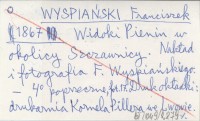 WYSPIAŃSKI Franciszek
[1867] Widoki Pienin w
okolicy Szczawnicy. Nakład
i fotografia F. Wyspiańskiego.
— 4o poprzeczny, Druk okładki:
drukarnia Kornela Pillera we Lwowie.